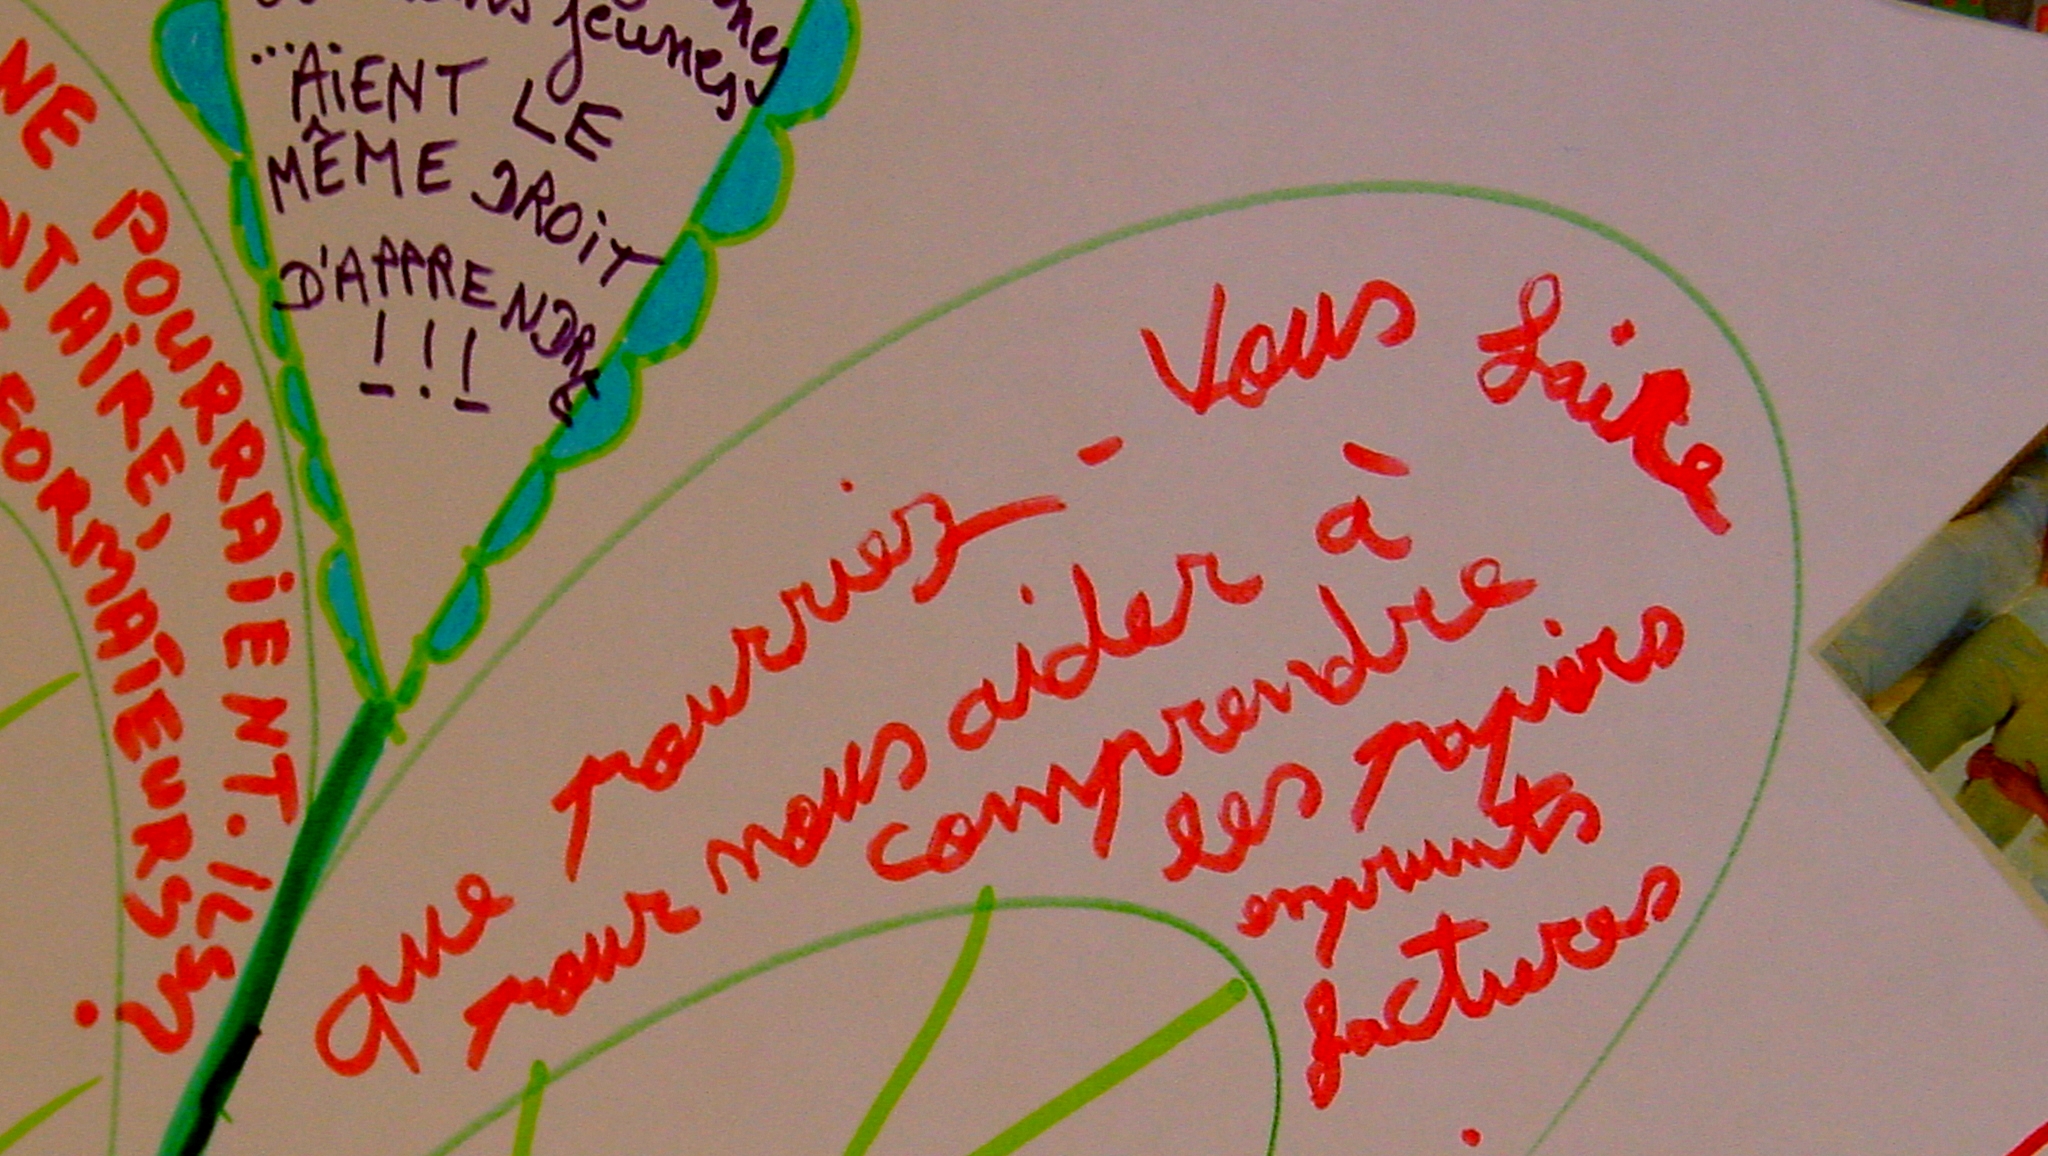 jeunes,
...AiENT LE
MÊME DROiT
D'APPRENDRE
!!!
NE POURRAIENT-ILS
NTAIRE,
FORMATEURS?
que pourriez-vous faire
pour nous aider à
comprendre
les papiers
emprunts
factures